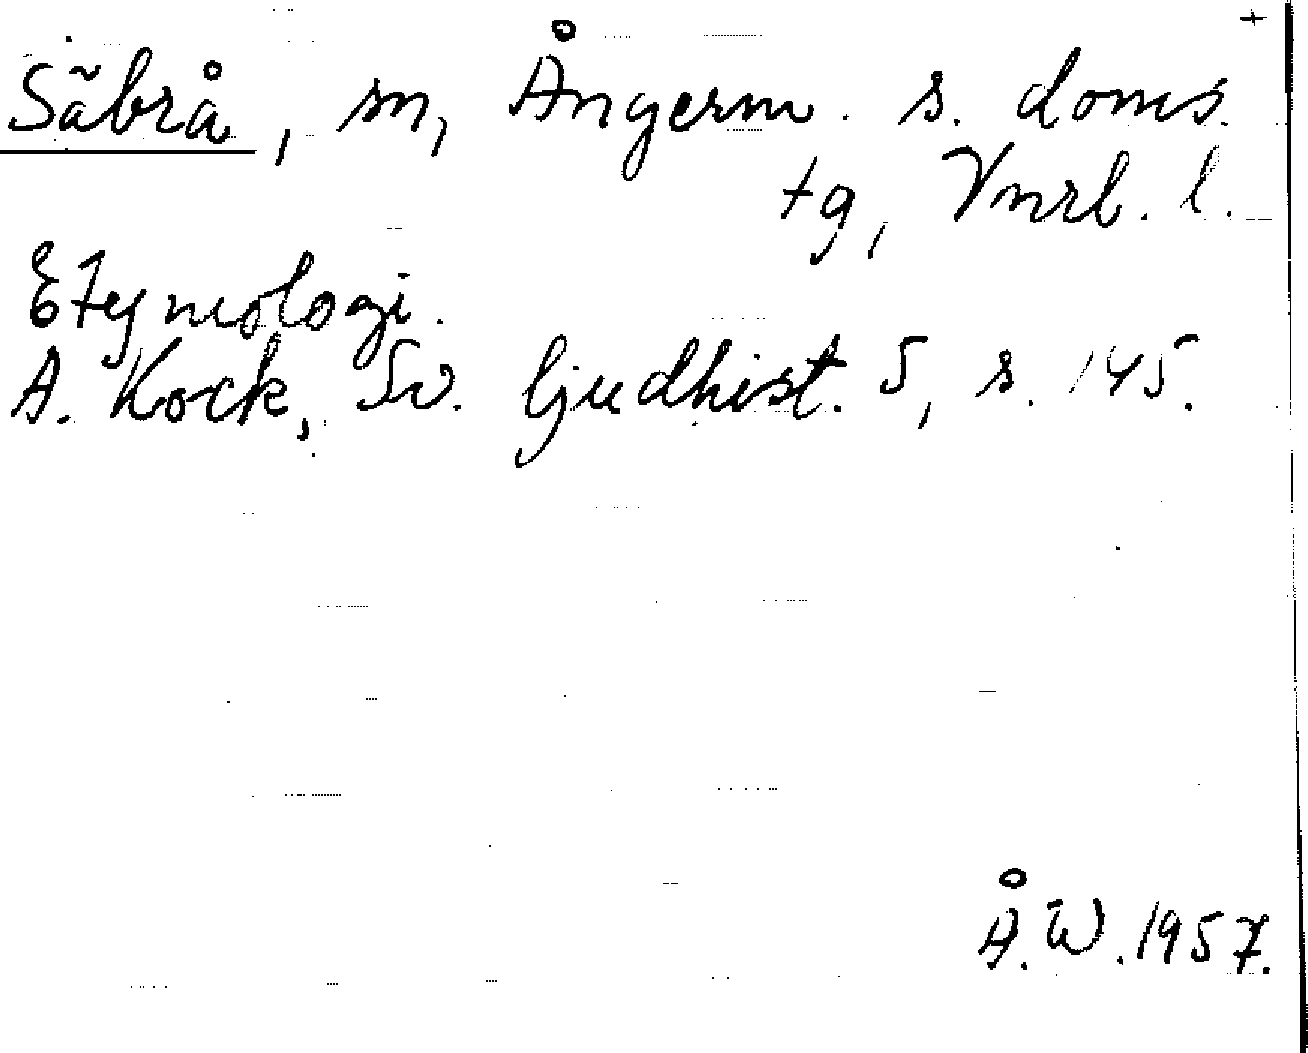 Säbrå, sn, Ångerm. s. doms.
tg, Vnrl. l.
Etymologi.
A. Kock, Sv. ljudhist. 5, s. 145.
Å.W. 1957.